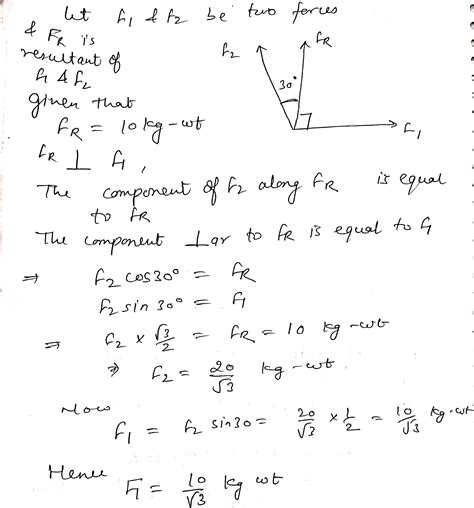 let F₁ & F₂ be two forces
& F_R is
resultant of
F₁ & F₂
given that
F_R = 10 kg-wt
F_R ⊥ F₁,
F₂
F_R
30°
F₁
The component of F₂ along F_R is equal
to F_R
The component ⊥ar to F_R is equal to F₁
⇒ F₂ cos30° = F_R
F₂ sin 30° = F₁
⇒ F₂ × √3/2 = F_R = 10 kg-wt
⇒ F₂ = 20/√3 kg-wt.
Now
F₁ = F₂ sin30 = 20/√3 × 1/2 = 10/√3 kg-wt
Hence
F₁ = 10/√3 kg wt